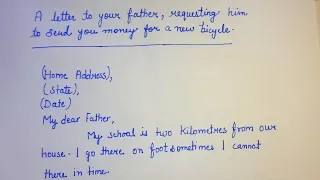 A letter to your father, requesting him
to send you money for a new bicycle.
(Home Address),
(State),
(Date)
My dear Father,
My school is two kilometres from our
house. I go there on foot sometimes I cannot
there in time.